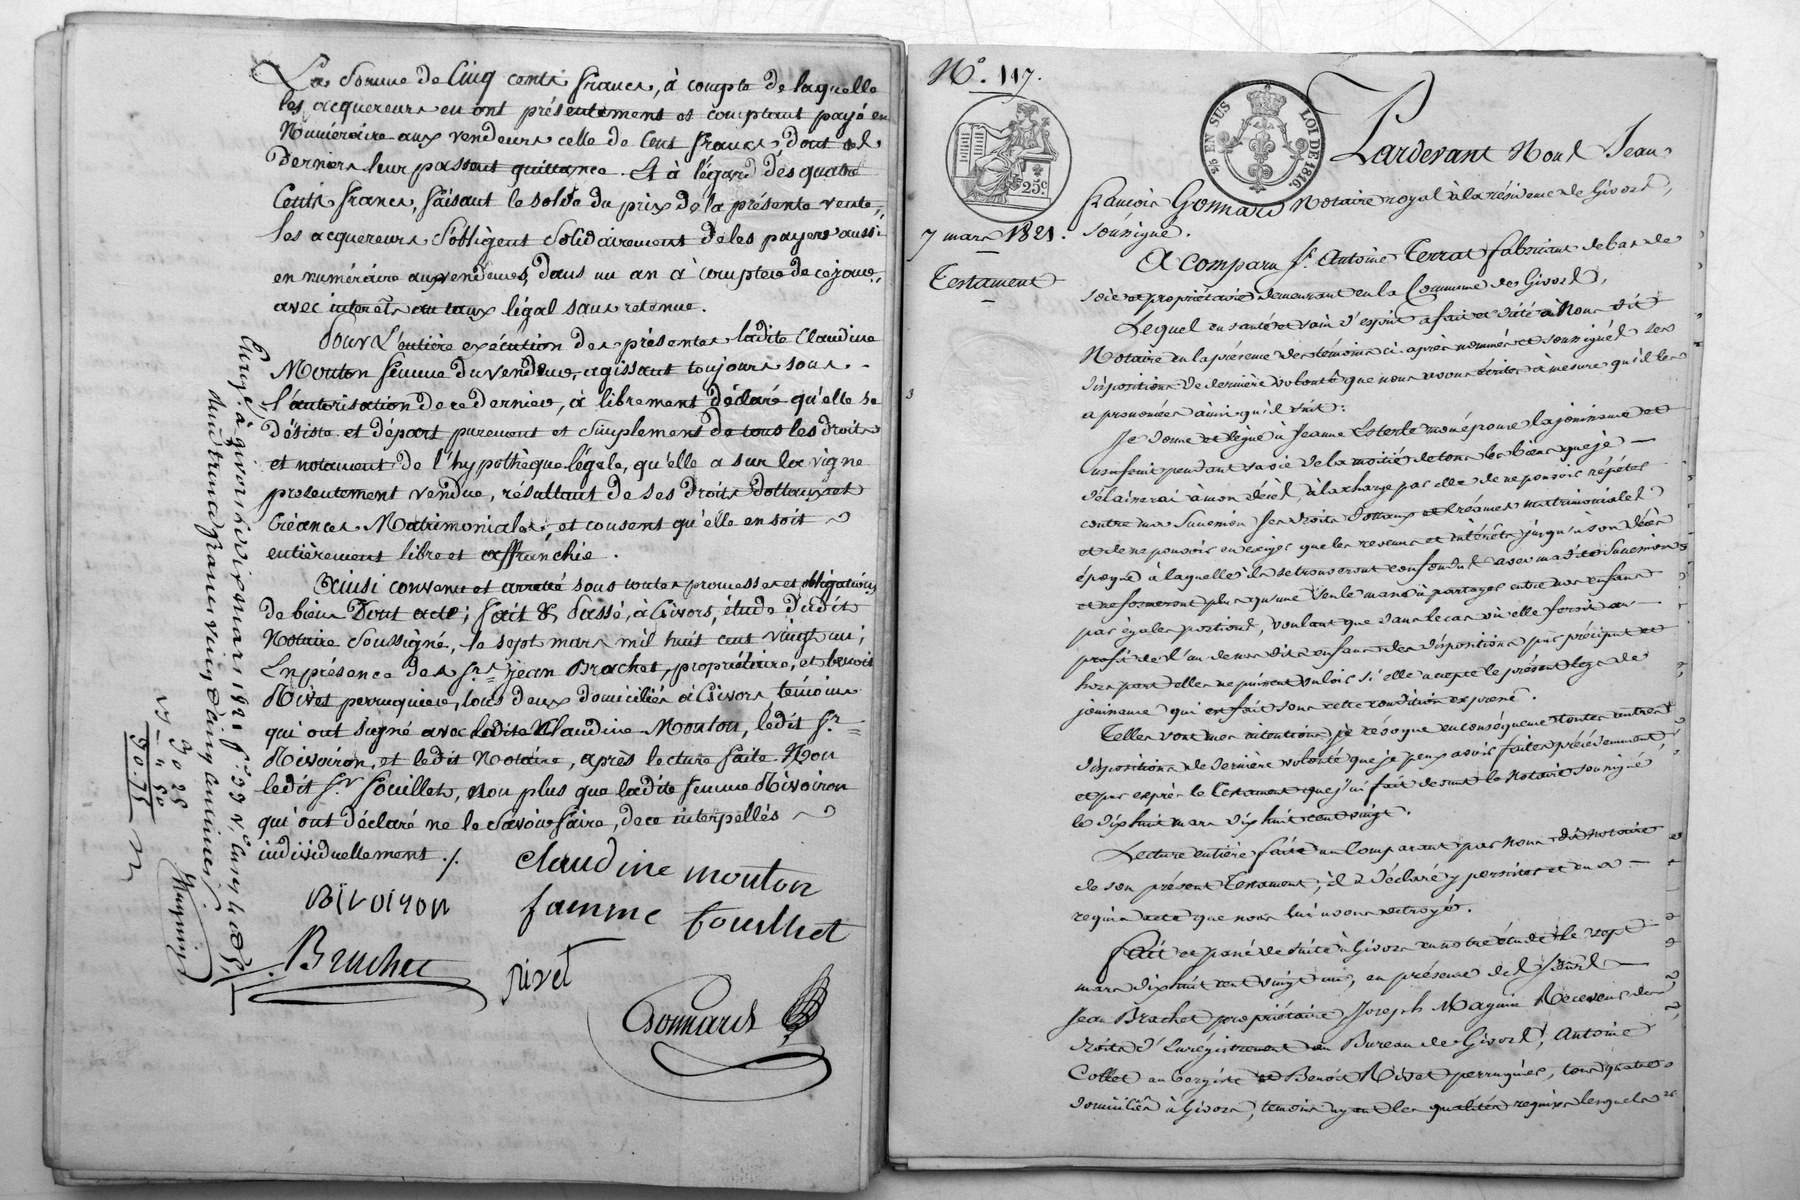 La Somme de Cinq cents francs, à compte de laquelle
les acquereurs en ont présentement et comptant payé en
Numéraire aux vendeurs celle de Cent francs, dont ces
Derniers leur passent quittance. Et à légard des quatre
Cents francs, faisant le solde du prix de la présente vente,
les acquereurs s'obligent solidairement de les payer aussi
en numéraire aux vendeurs, dans un an à compter de ce jour,
avec intérêts au taux légal sans retenue.
Pour l'entière exécution des présentes ladite Claudine
Mouton femme du vendeur, agissant toujours sous
l'autorisation de ce dernier, à librement déclaré qu'elle se
Désiste et départ purement et simplement de tous les droits
et notament de l'hypothèque légale, qu'elle a sur la vigne
présentement vendue, résultant de ses droits Dottaux et
Créances Matrimoniales, et consent qu'elle en soit
entièrement libre et affranchie.
Ainsi convenu et arreté sous toutes promesses et obligations
de biens Dont acte; fait & Passé, à Givors, étude dudit
Notaire soussigné, le sept mars mil huit cent vingt un;
En présence des Srs jean Brachet, propriétaire, et benoit
Rivet perruquier, tous deux domiciliés à Givors témoins
qui ont signé avec ladite Claudine Mouton, ledit Sr
Bivoiron, et ledit Notaire, après lecture faite Non
ledit Sr fouillet, non plus que ladite femme Bivoiron
qui ont déclaré ne le savoir faire, de ce interpellés
individuellement ./.
claudine mouton
BIVOIRON
famme fouillhet
Brachet
rivet
Gonnard
Enregé. à givors le dix mars 1821 fo
Reçu trente francs vingt cinq centimes
30 25
4 50
N°. 117.
EN SUS
LOI DE 1816.
25c.
7 mars 1821.
Testament
Pardevant Nous Jean
françois Gonnard Notaire royal à la résidence de Givors,
soussigné.
A comparu Sr. Antoine Terrat fabricant de bas de
soie et propriétaire demeurant en la Commune de Givors,
Lequel en santé et sain d'esprit a fait et dicté à Nous dit
Notaire en la présence des témoins ci-après nommés et soussignés ses
dispositions de dernière volonté que nous avons écrites à mesure qu'il les
a prononcées ainsi qu'il suit:
Je donne et lègue à Jeanne Esterle mon épouse la jouissance et
usufruit pendant sa vie de la moitié de tous les biens que je
délaisserai à mon décès, à la charge par elle de ne pouvoir répéter
contre ma Succession ses droits Dottaux et Créances matrimoniales
et de ne pouvoir en exiger que les revenus et intérêts jusqu'à son décès
époque à laquelle ils se trouveront confondus avec ma dite Succession
et ne formeront plus qu'une seule masse à partager entre nos enfans
par égales portions, voulant que dans le cas où elle feroit au
profit de l'un de nos dits enfans des dispositions par préciput et
hors part elle ne puisse vouloir si elle accepte le présent legs de
jouissance qui est fait sous cette condition expresse.
Telles sont mes intentions je révoque en conséquence toutes autres
dispositions de dernière volonté que je peux avoir faites précédemment,
et par exprès le Testament que j'ai fait devant le Notaire soussigné
le dix huit mars dix huit cent vingt.
Lecture entière faite au Comparant par Nous dit notaire
de son présent Testament; il a déclaré y persister et en a
requis acte que nous lui avons octroyé.
Fait et passé de suite à Givors en notre étude le sept
mars dix huit cent vingt un, en présence des Sieurs
Jean Brachet propriétaire, Joseph Magnin Receveur des
droits d'Enrégistrement au Bureau de Givors, Antoine
Collet aubergiste et Benoit Rivet perruquier, tous quatre
domiciliés à Givors, témoins ayant les qualités requises lesquels